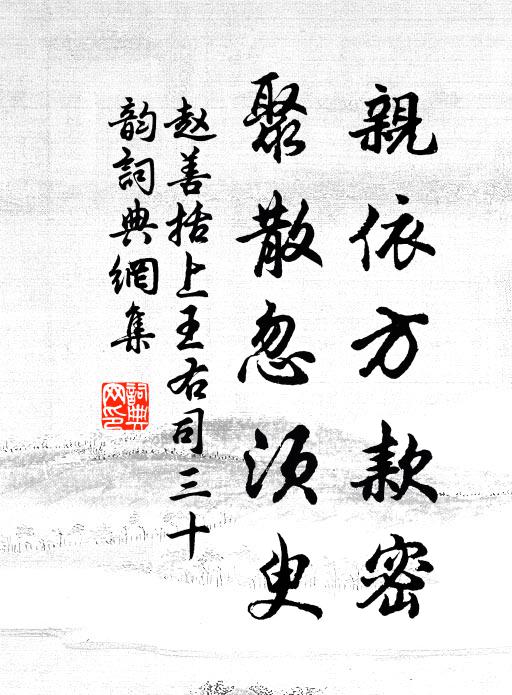 親依方款密
聚散忽須臾
赵善括上王右司三十
韵詞典網集
詞典網印